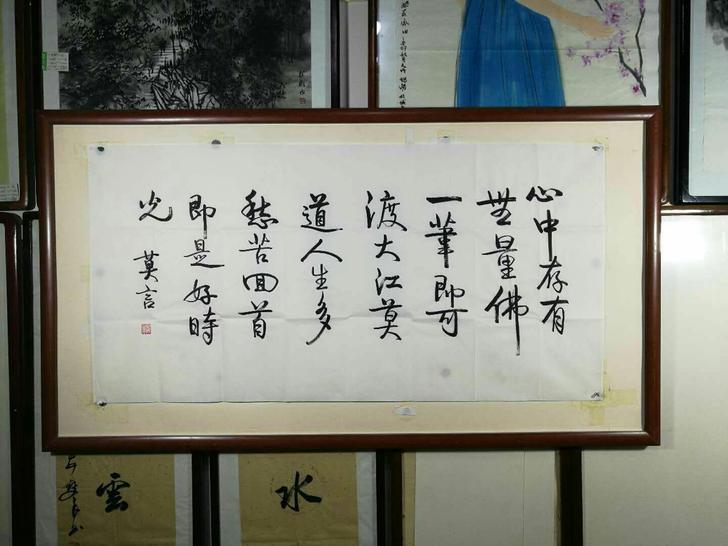 心中存有
無量佛
一筆即可
渡大江莫
道人生多
愁苦回首
即是好時
光
莫言
雲
水